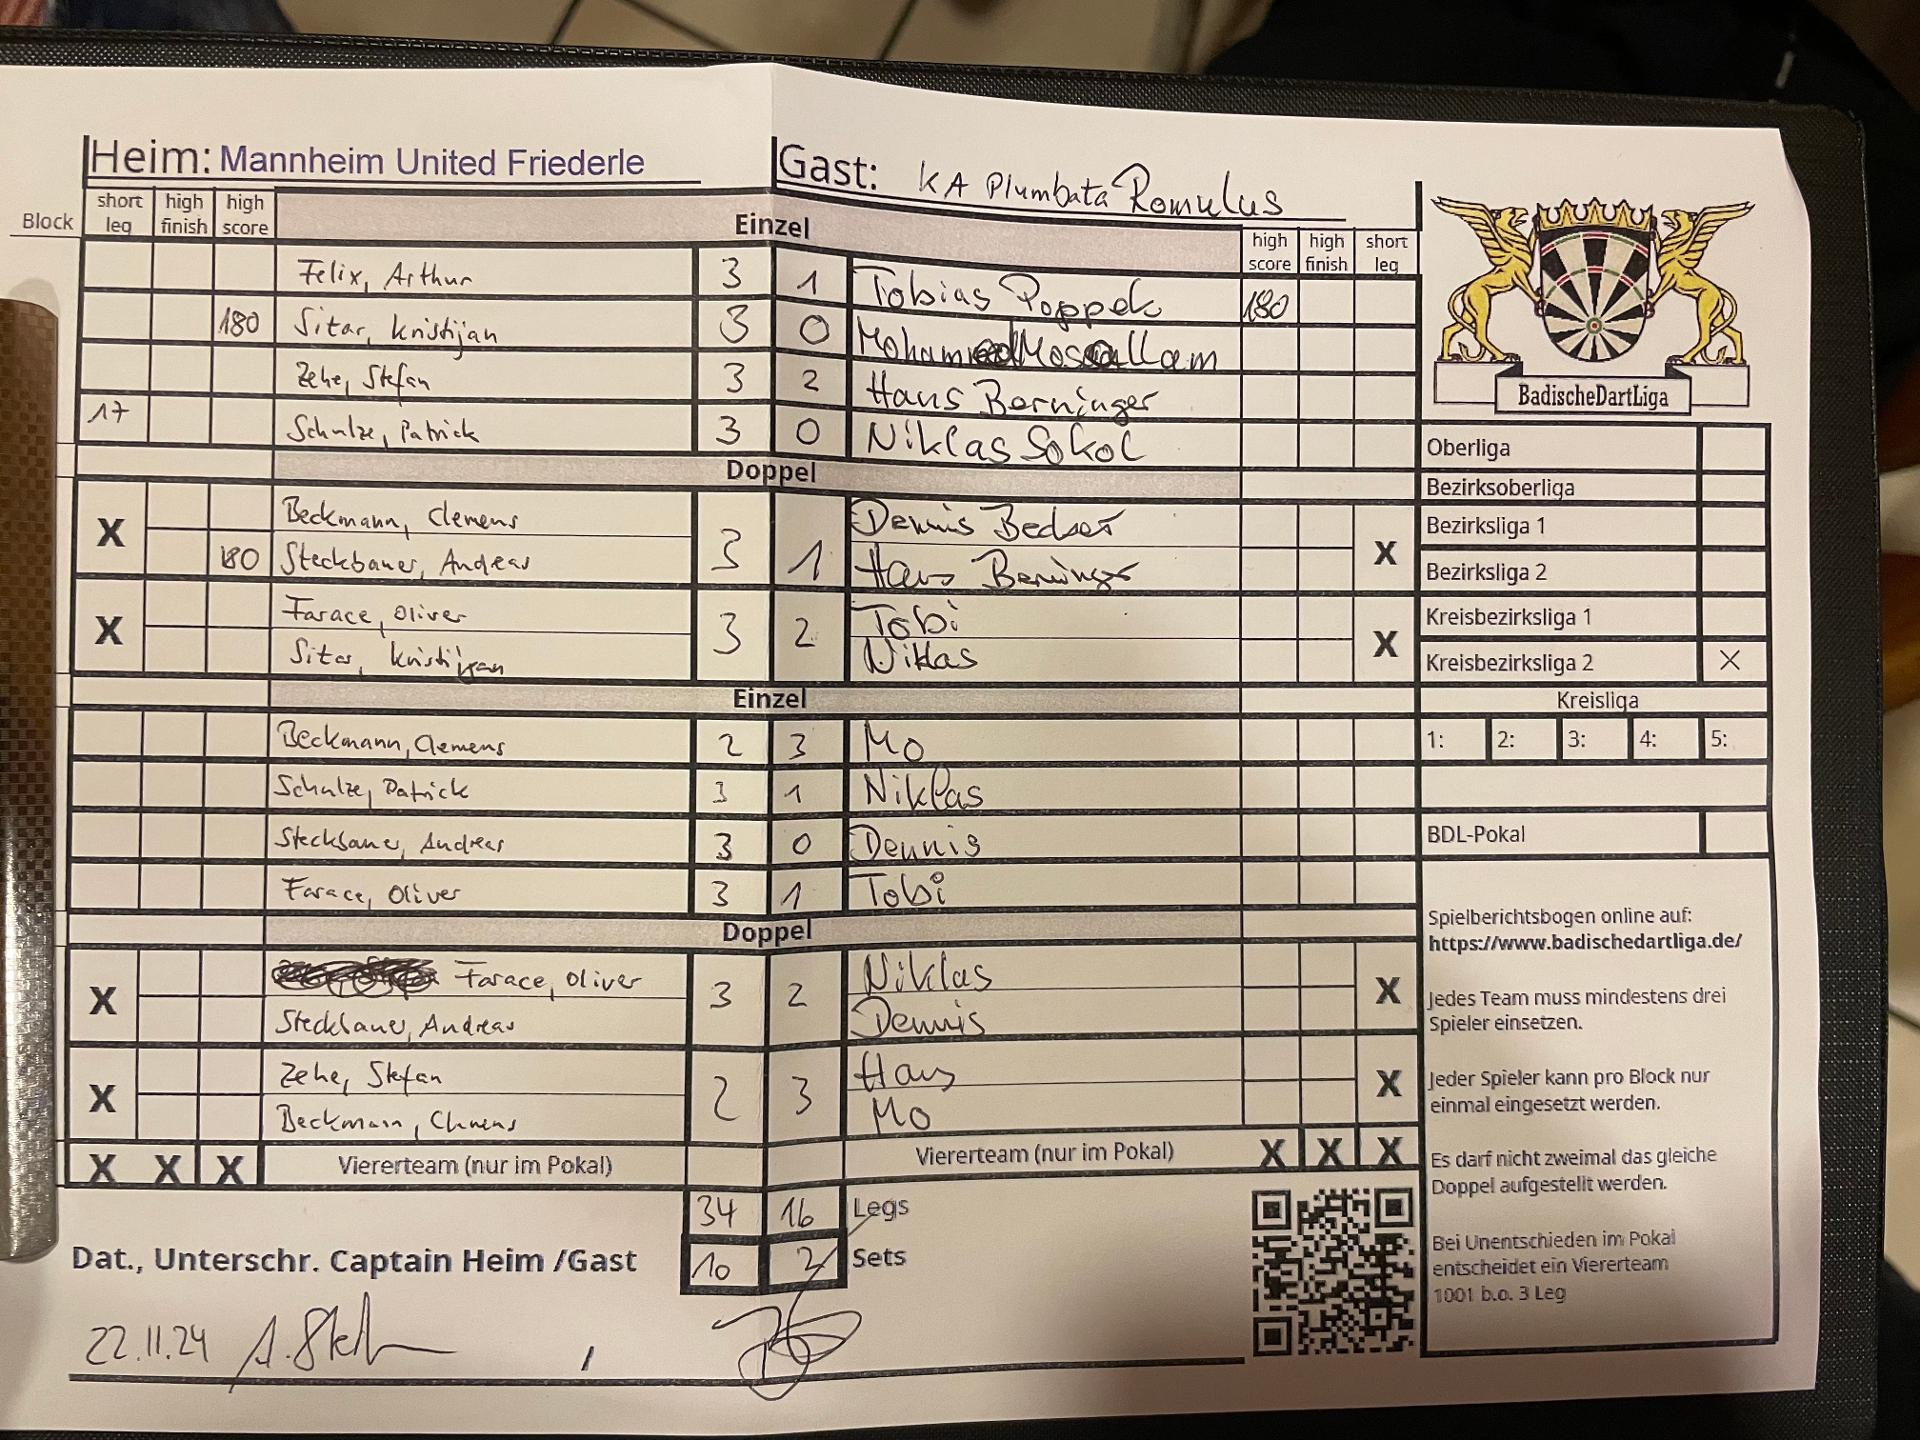 Heim: Mannheim United Friederle
Gast: KA Plumbata Romulus
Block short leg high finish high score Einzel high score high finish short leg
Felix, Arthur 3 1 Tobias Poppek 180
180 Sitar, Kristijan 3 0 Mohamed Mosallam
Zehe, Stefan 3 2 Hans Berninger
17 Schulze, Patrick 3 0 Niklas Sokol
Doppel
X Beckmann, Clemens 3 1 Dennis Becker X
180 Steckbauer, Andreas Hans Berninger
X Farace, Oliver 3 2 Tobi X
Sitar, Kristijan Niklas
Einzel
Beckmann, Clemens 2 3 Mo
Schulze, Patrick 3 1 Niklas
Steckbauer, Andreas 3 0 Dennis
Farace, Oliver 3 1 Tobi
Doppel
X Farace, Oliver 3 2 Niklas X
Steckbauer, Andreas Dennis
X Zehe, Stefan 2 3 Hans X
Beckmann, Clemens Mo
X X X Viererteam (nur im Pokal) Viererteam (nur im Pokal) X X X
34 16 Legs
Dat., Unterschr. Captain Heim /Gast 10 2 Sets
22.11.24 /
BadischeDartLiga
Oberliga
Bezirksoberliga
Bezirksliga 1
Bezirksliga 2
Kreisbezirksliga 1
Kreisbezirksliga 2 X
Kreisliga
1: 2: 3: 4: 5:
BDL-Pokal
Spielberichtsbogen online auf:
https://www.badischedartliga.de/
Jedes Team muss mindestens drei
Spieler einsetzen.
Jeder Spieler kann pro Block nur
einmal eingesetzt werden.
Es darf nicht zweimal das gleiche
Doppel aufgestellt werden.
Bei Unentschieden im Pokal
entscheidet ein Viererteam
1001 b.o. 3 Leg